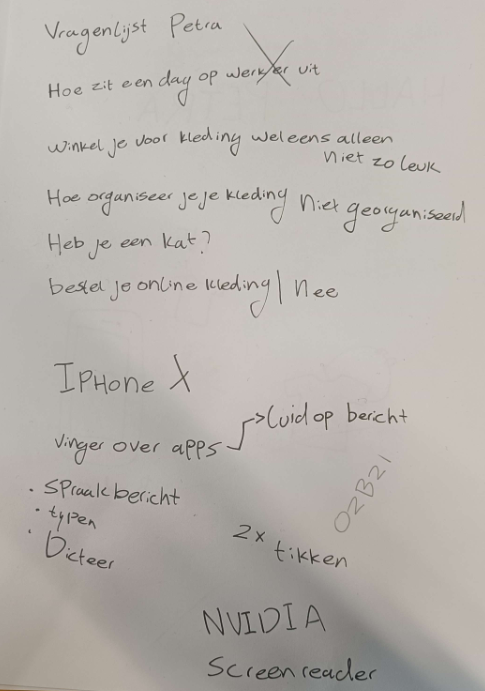 Vragenlijst Petra
Hoe zit een day op werk er uit
Winkel je voor kleding weleens alleen
niet zo leuk
Hoe organiseer je je kleding Niet georganiseerd
Heb je een kat?
bestel je online kleding | Nee
IPHone X
Vinger over apps -> luid op bericht
• Spraakbericht
• typen
• Dicteer
2x tikken
02B21
NVIDIA
Screenreader